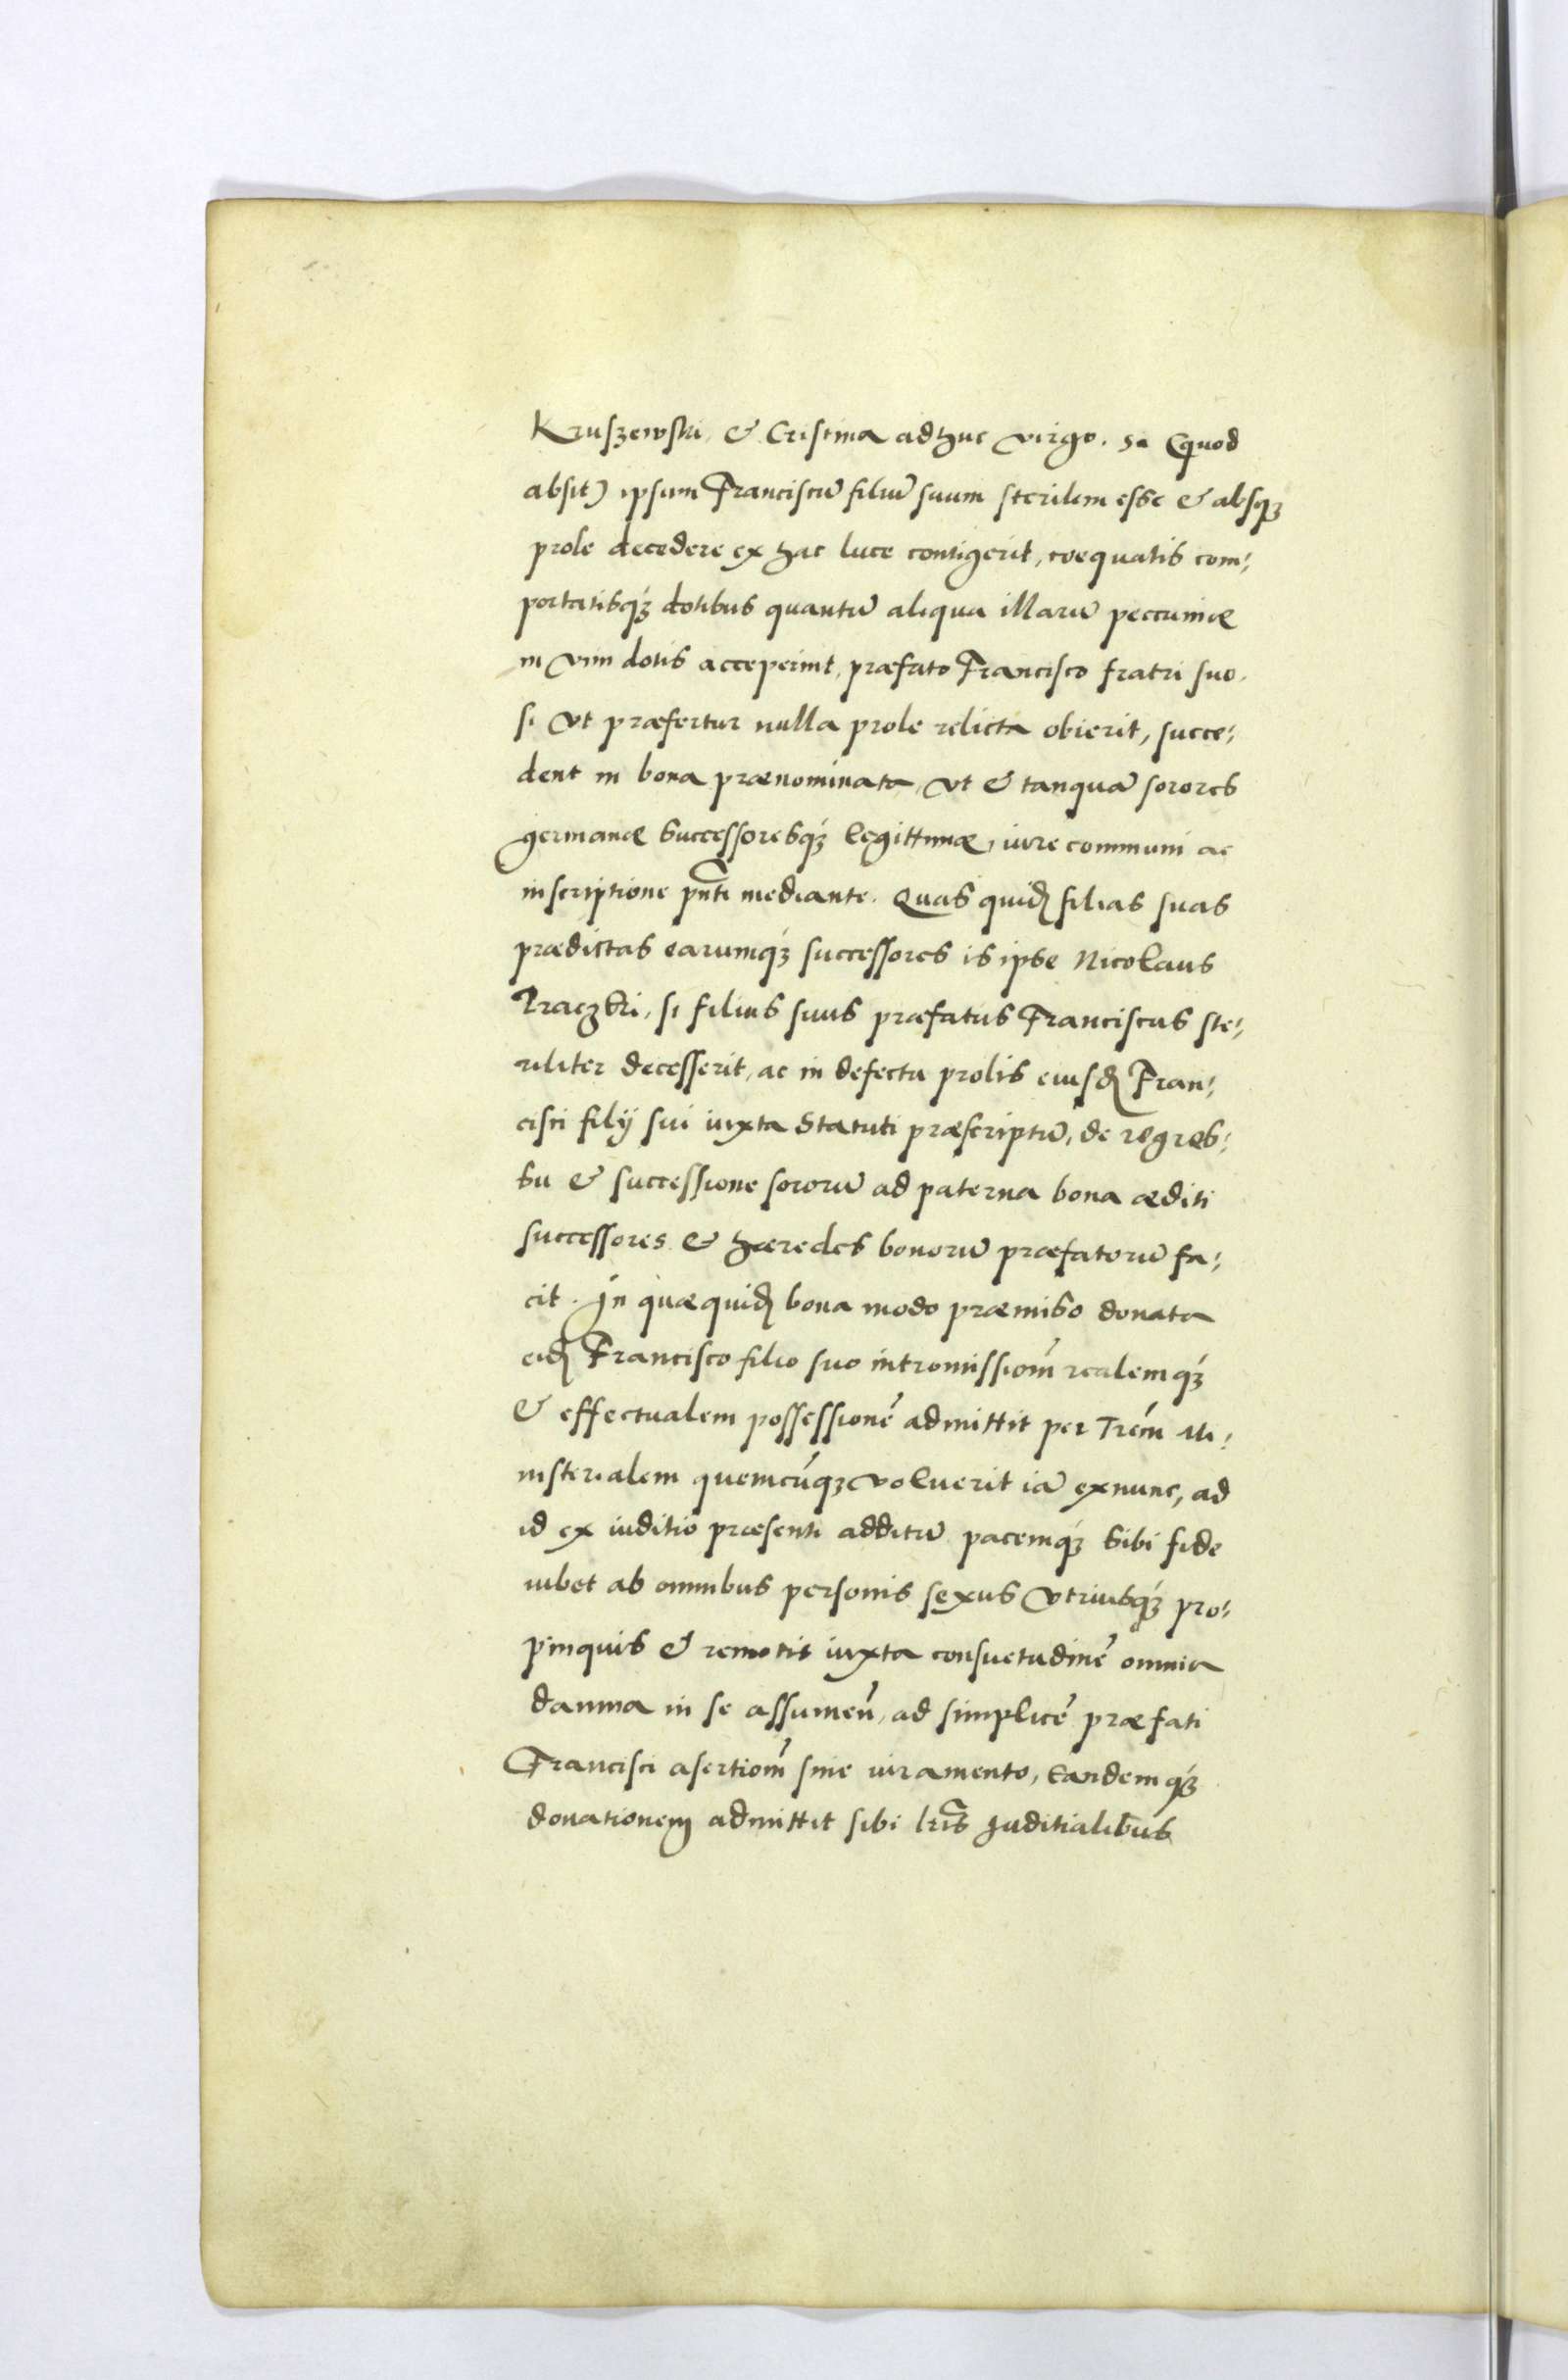 Kruszewski, & Cristina adhuc virgo. Si (quod
absit) ipsum Franciscū filiū suum sterilem esse & absq;
prole decedere ex hac luce contigerit, coequatis com:
portatisq; dotibus quantū aliqua illarū peccuniæ
in vim dotis acceperint, præfato Francisco fratri suo,
si vt præfertur nulla prole relicta obierit, succe:
dent in bona prænominata, vt & tanquā sorores
germanæ successoresq; legittimæ, iure communi ac
inscriptione pnti mediante. Quas quid filias suas
prædictas earumq; successores is ipse Nicolaus
Traczki, si filius suus præfatus Franciscus ste:
riliter decesserit, ac in defectu prolis eiusd Fran:
cisci filij sui iuxta Statuti præscriptū, de regres:
su & successione sororū ad paterna bona æditi
successores & hæredes bonorū præfatorū fa:
cit. In quæ quid bona modo præmisso donata
eid Francisco filio suo intromissiom̄ realemq;
& effectualem possessionē admittit per Trēm Mi:
nisterialem quemcūq; voluerit iā exnunc, ad
id ex iuditio præsenti additū pacemq; sibi fide
iubet ab omnibus personis sexus vtriusq; pro:
pinquis & remotis iuxta consuetudinē omnia
damna in se assumen̄, ad simplicē præfati
Francisci asertiom̄ sine iuramento, Eandemq;
donationem admittit sibi lris Juditialibus